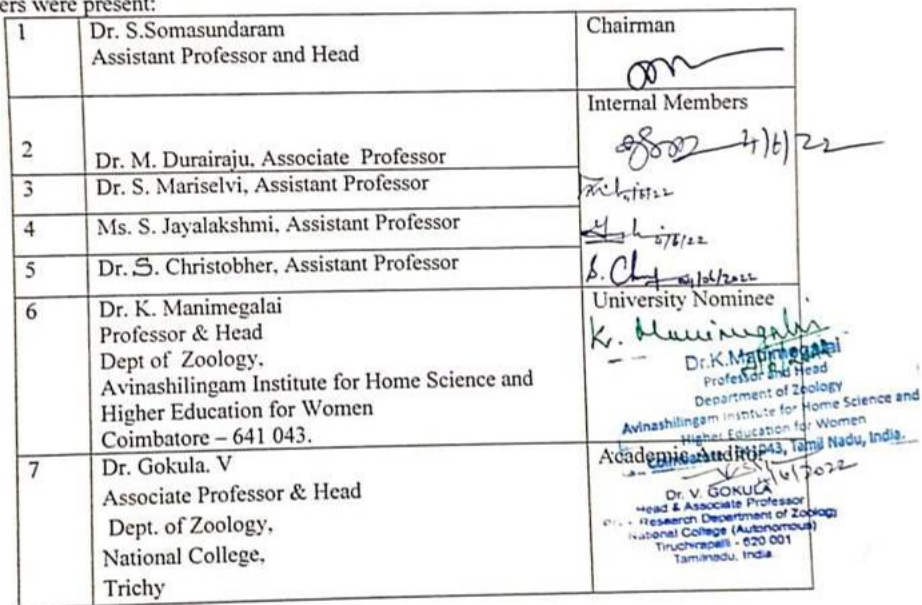 ers were present:
1
Dr. S.Somasundaram
Assistant Professor and Head
Chairman
Internal Members
2
Dr. M. Durairaju, Associate Professor
4/6/22
3
Dr. S. Mariselvi, Assistant Professor
4
Ms. S. Jayalakshmi, Assistant Professor
5
Dr. S. Christobher, Assistant Professor
6
Dr. K. Manimegalai
Professor & Head
Dept of Zoology,
Avinashilingam Institute for Home Science and
Higher Education for Women
Coimbatore – 641 043.
University Nominee
K. Manimegalai
Dr.K.Manimegalai
Professor and Head
Department of Zoology
Avinashilingam Institute for Home Science and
Higher Education for Women
Coimbatore 641043, Tamil Nadu, India.
7
Dr. Gokula. V
Associate Professor & Head
Dept. of Zoology,
National College,
Trichy
Academic Auditor
Dr. V. GOKULA
Head & Associate Professor
Research Department of Zoology
National College (Autonomous)
Tiruchirapalli - 620 001
Tamilnadu, India